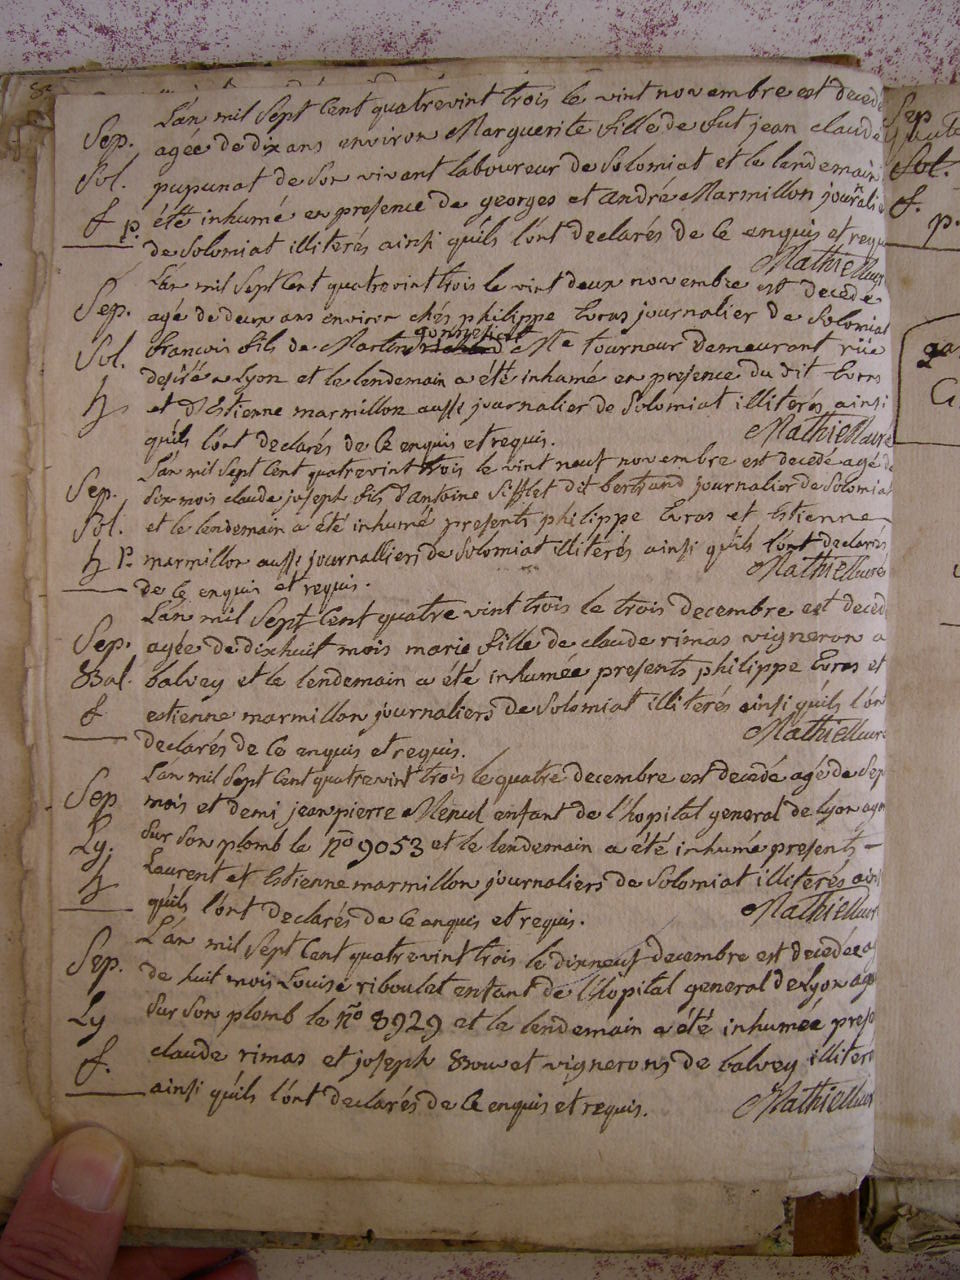 L'an mil Sept Cent quatrevint trois le vint novembre est decedé
Sep. agée de dix ans environ Marguerite fille de fut jean claude
Sol. pupunat de Son vivant laboureur de Solomiat et le lendemain
f p. été inhumé en presence de georges et andré Marmillon journalie
de Solomiat illiterés ainsi quils l'ont declarés de Ce enquis et requ
Mathieu
L'an mil Sept Cent quatrevint trois le vint deux novembre est decedé
Sep. agé de deux ans environ chés philippe Evras journalier de Solomiat
Sol. francois fils de Martin Me tourneur demeurant rüe
h desirée a Lyon et le lendemain a été inhumé en presence du dit Evras
et d'Estienne marmillon aussi journalier de Solomiat illiterés ainsi
quils l'ont declarés de Ce enquis et requis.
L'an mil Sept Cent quatrevint trois le vint neuf novembre est decedé agé de
Sep. Six mois claude joseph fils d'antoine Sifflet dit bertrand journalier de Solomiat
Sol. et le lendemain a été inhumé presents philippe Evras et Estienne
h p. marmillon aussi journalliers de Solomiat illiterés ainsi quils l'ont declarés
de Ce enquis et requis.
L'an mil Sept Cent quatre vint trois le trois decembre est deced
Sep. agée de dixhuit mois marie fille de claude rimas vigneron a
Bal. balvey et le lendemain a été inhumée presents philippe Evras et
f estienne marmillon journaliers de Solomiat illiterés ainsi quils l'on
declarés de Ce enquis et requis.
L'an mil Sept Cent quatrevint trois le quatre decembre est decedé agé de Sep
Sep mois et demi jeanpierre Menul enfant de l'hopital general de lyon ayan
Ly. Sur Son plomb le no 9053 et le lendemain a été inhumé presents
h Laurent et Estienne marmillon journaliers de Solomiat illiterés ains
quils l'ont declarés de Ce enquis et requis.
L'an mil Sept Cent quatrevint trois le dixneuf decembre est decedée ag
Sep. de huit mois Louise riboulet enfant de l'hopital general de Lyon aya
Ly Sur Son plomb le no 8929 et le lendemain a été inhumée prese
f. claude rimas et joseph Bouvet vignerons de balvey illiteré
ainsi quils l'ont declarés de Ce enquis et requis.
Sep
Sol.
f.
p.